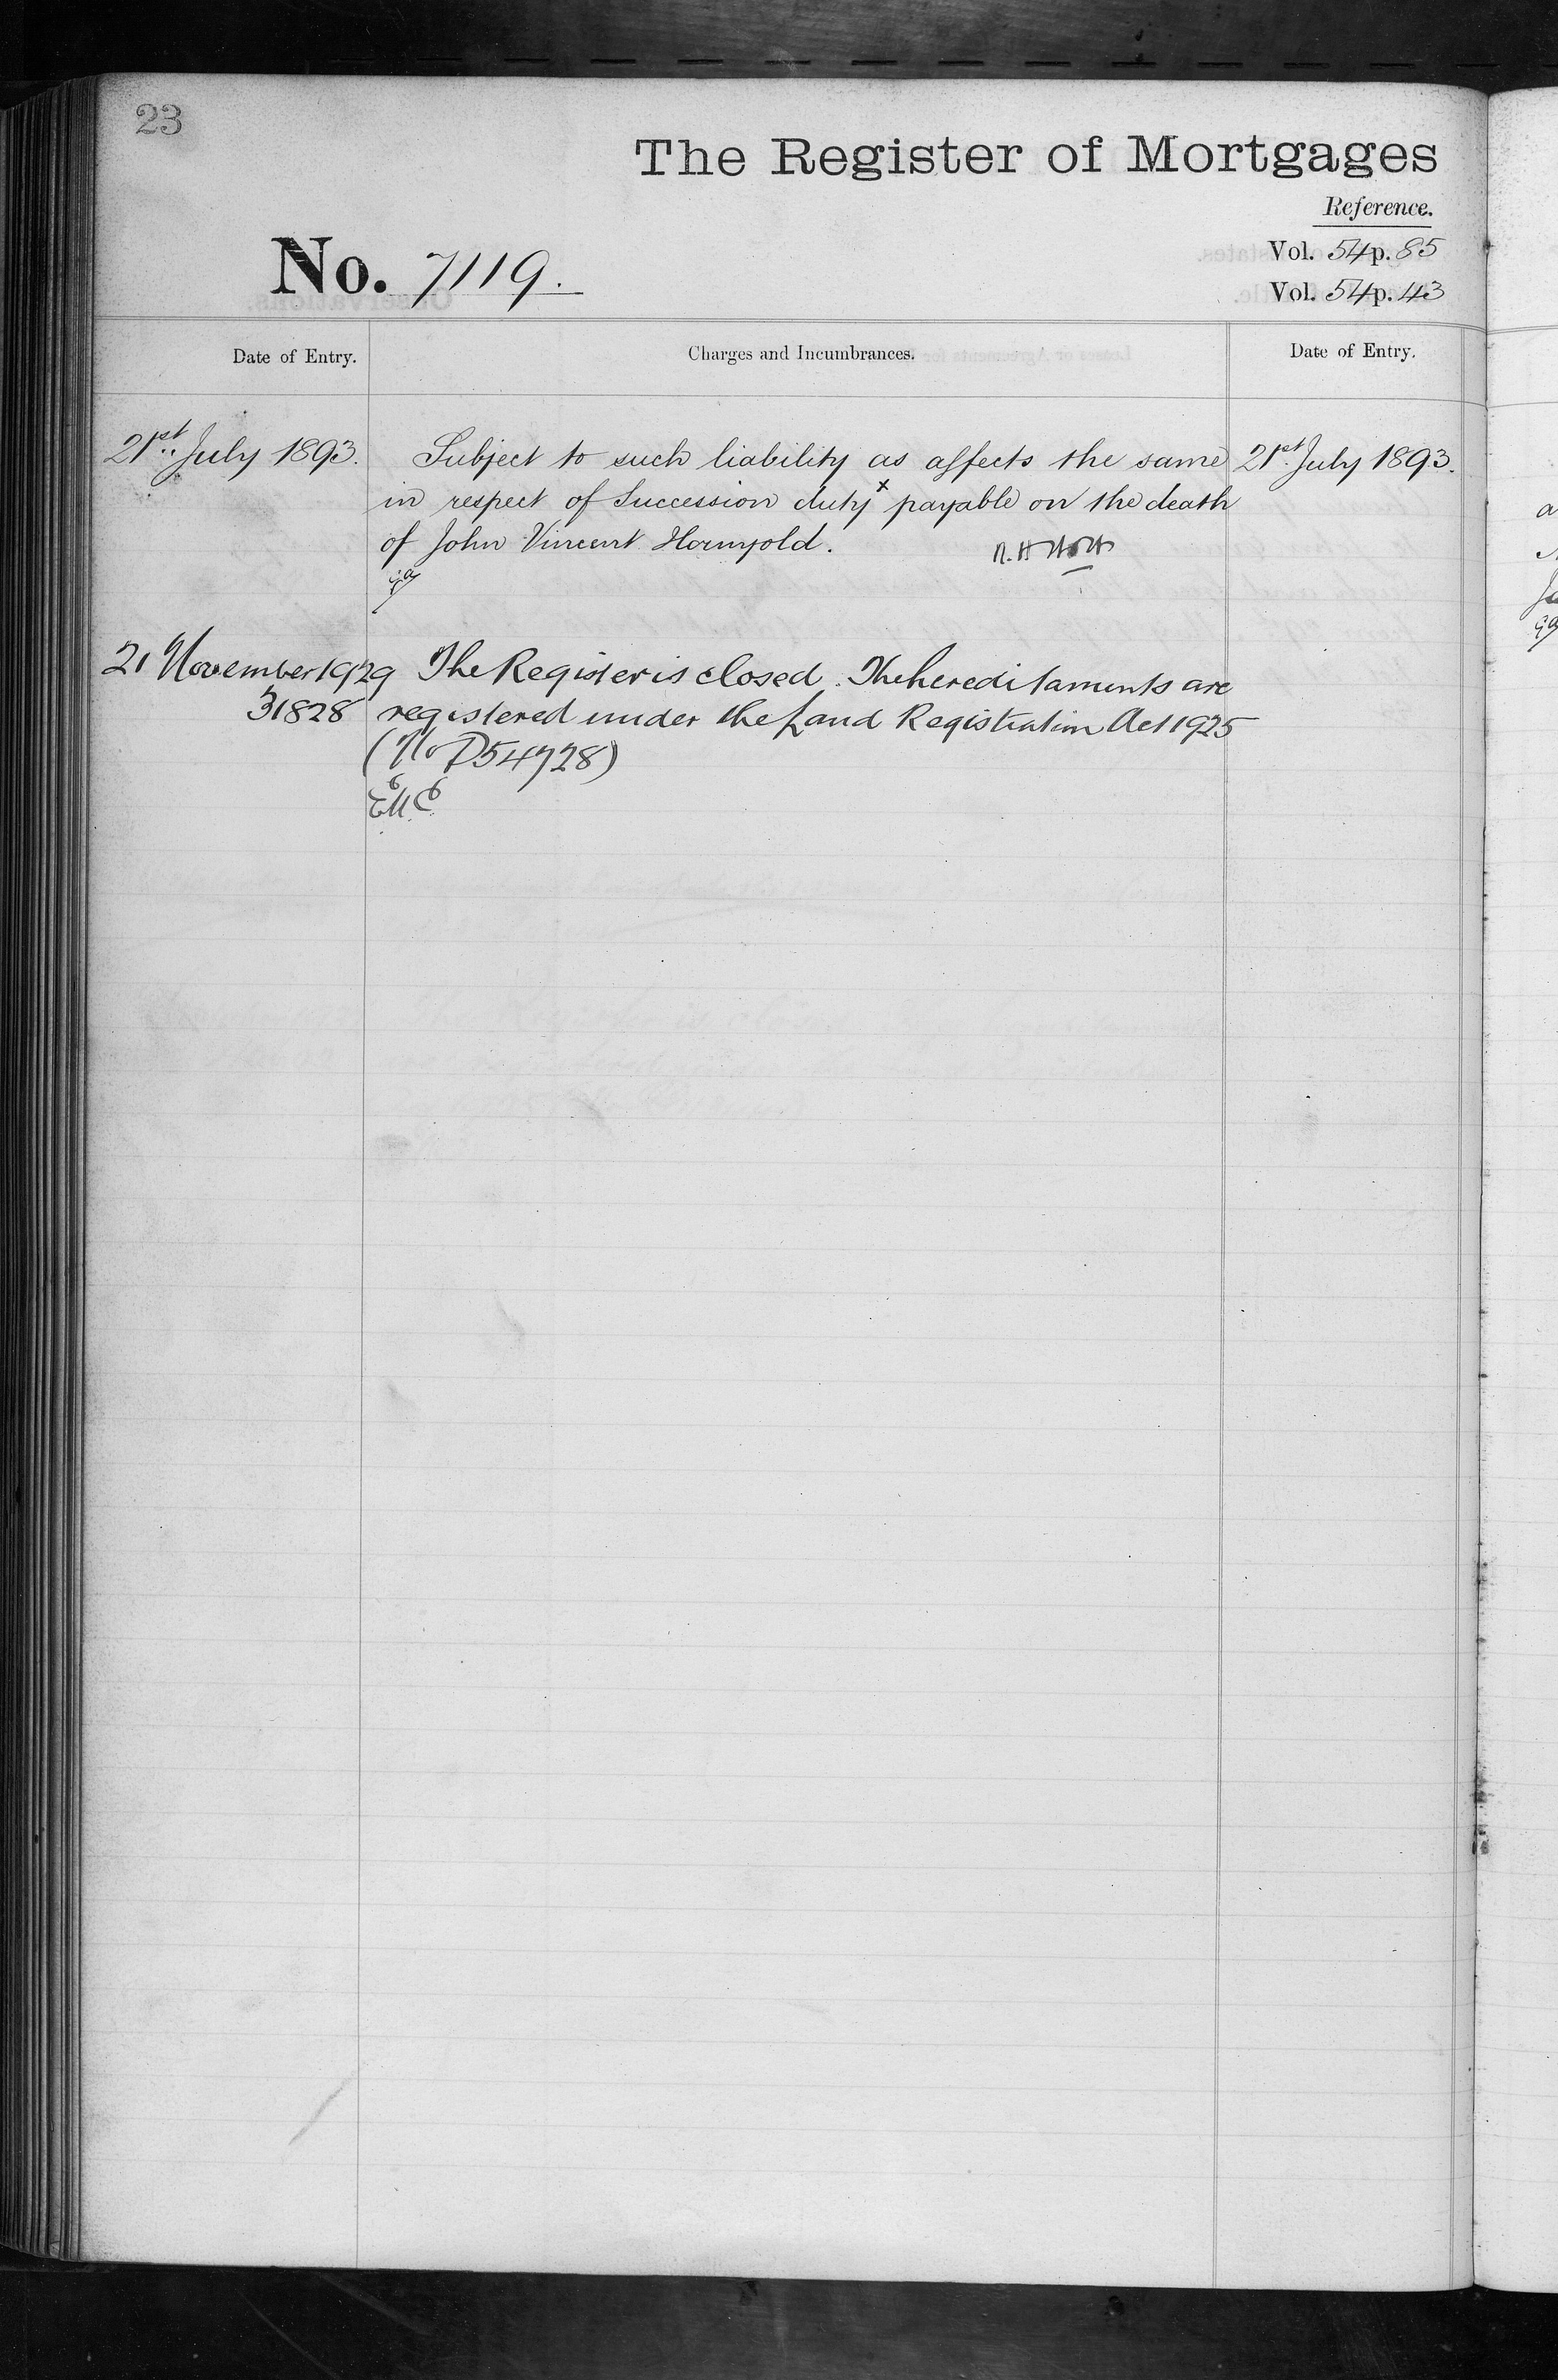 23
The Register of Mortgages
Reference.
No. 7119.
Vol. 54 p. 85
Vol. 54 p. 43
Date of Entry. Charges and Incumbrances. Date of Entry.
21st July 1893. Subject to such liability as affects the same 21st July 1893.
in respect of Succession duty x payable on the death
of John Vincent Hornyold.
21 November 1929 The Register is closed. The hereditaments are
31828 registered under the Land Registration Act 1925
(No P54728)